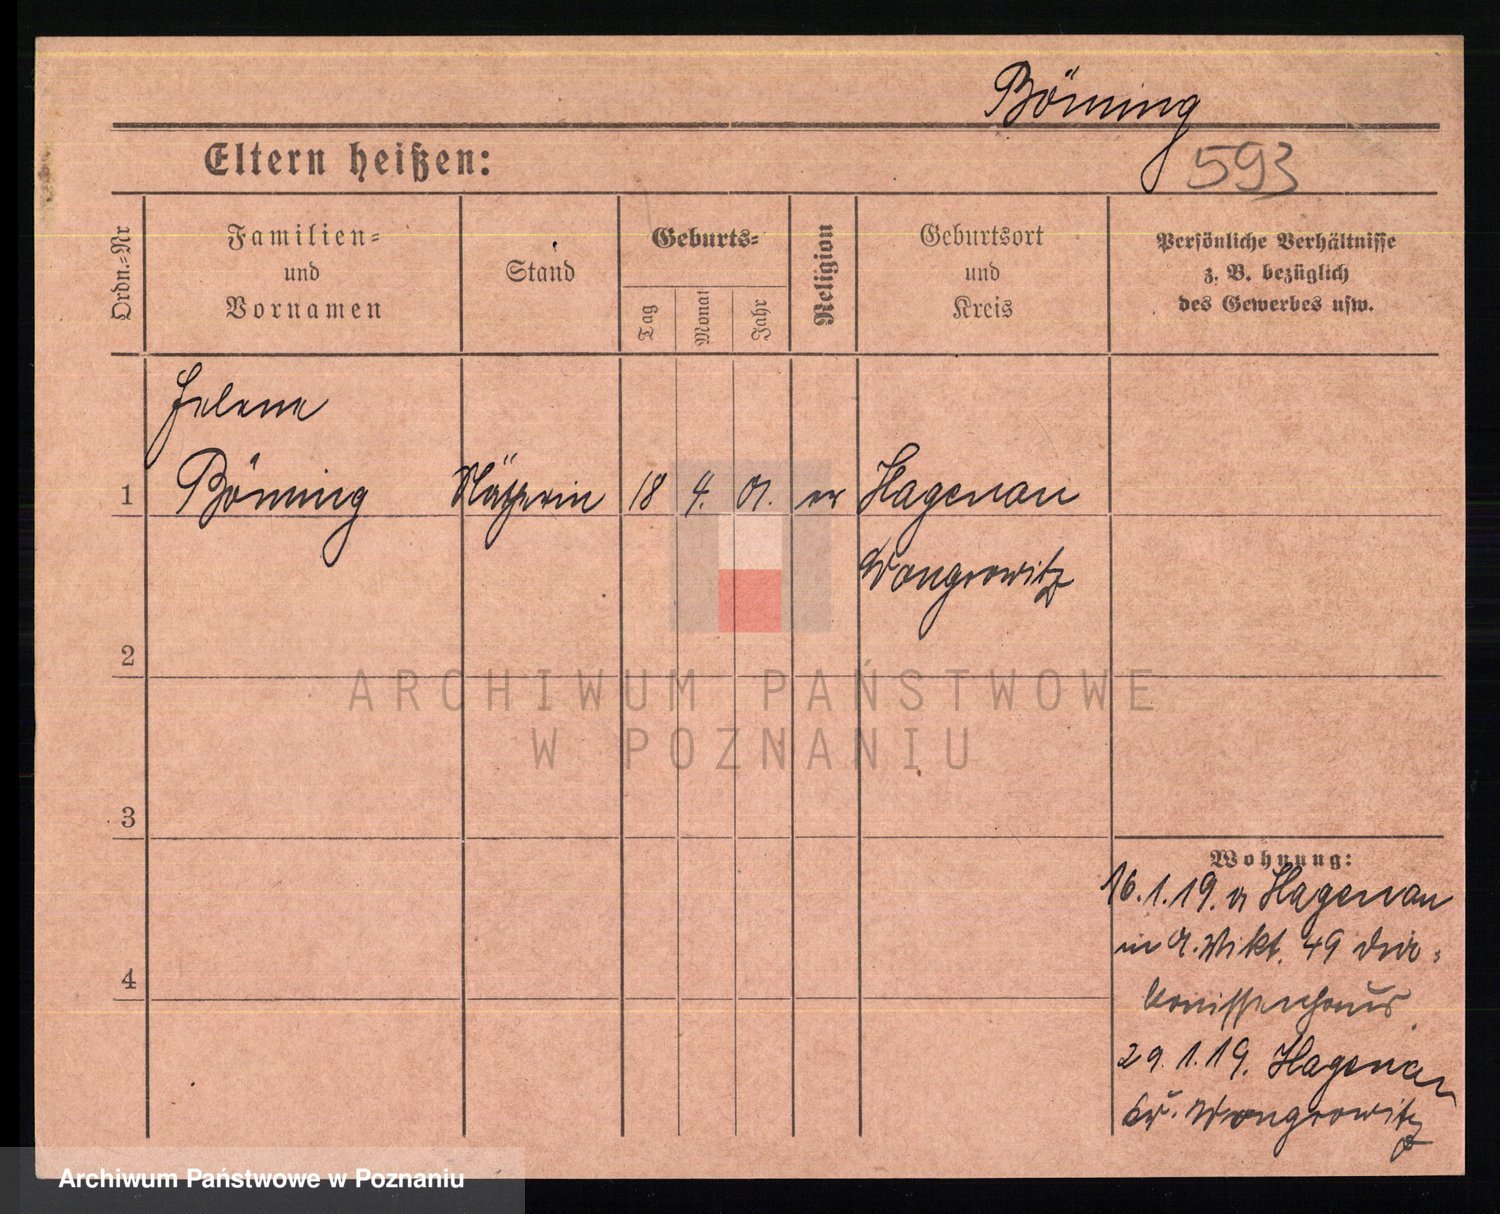 Böming
593
Eltern heißen:
Ordn.=Nr
Familien=
und
Vornamen
Stand
Geburts=
Tag
Monat
Jahr
Religion
Geburtsort
und
Kreis
Persönliche Verhältnisse
z. B. bezüglich
des Gewerbes usw.
Helene
1 Böming Näherin 18 4. 01. ev Hagenau
Wongrowitz
2
3
4
Wohnung:
16.1.19. v Hagenau
in A. Vikt. 49 Dia=
konissenhaus
29.1.19. Hagenau
Kr. Wongrowitz
ARCHIWUM PAŃSTWOWE
W POZNANIU
Archiwum Państwowe w Poznaniu